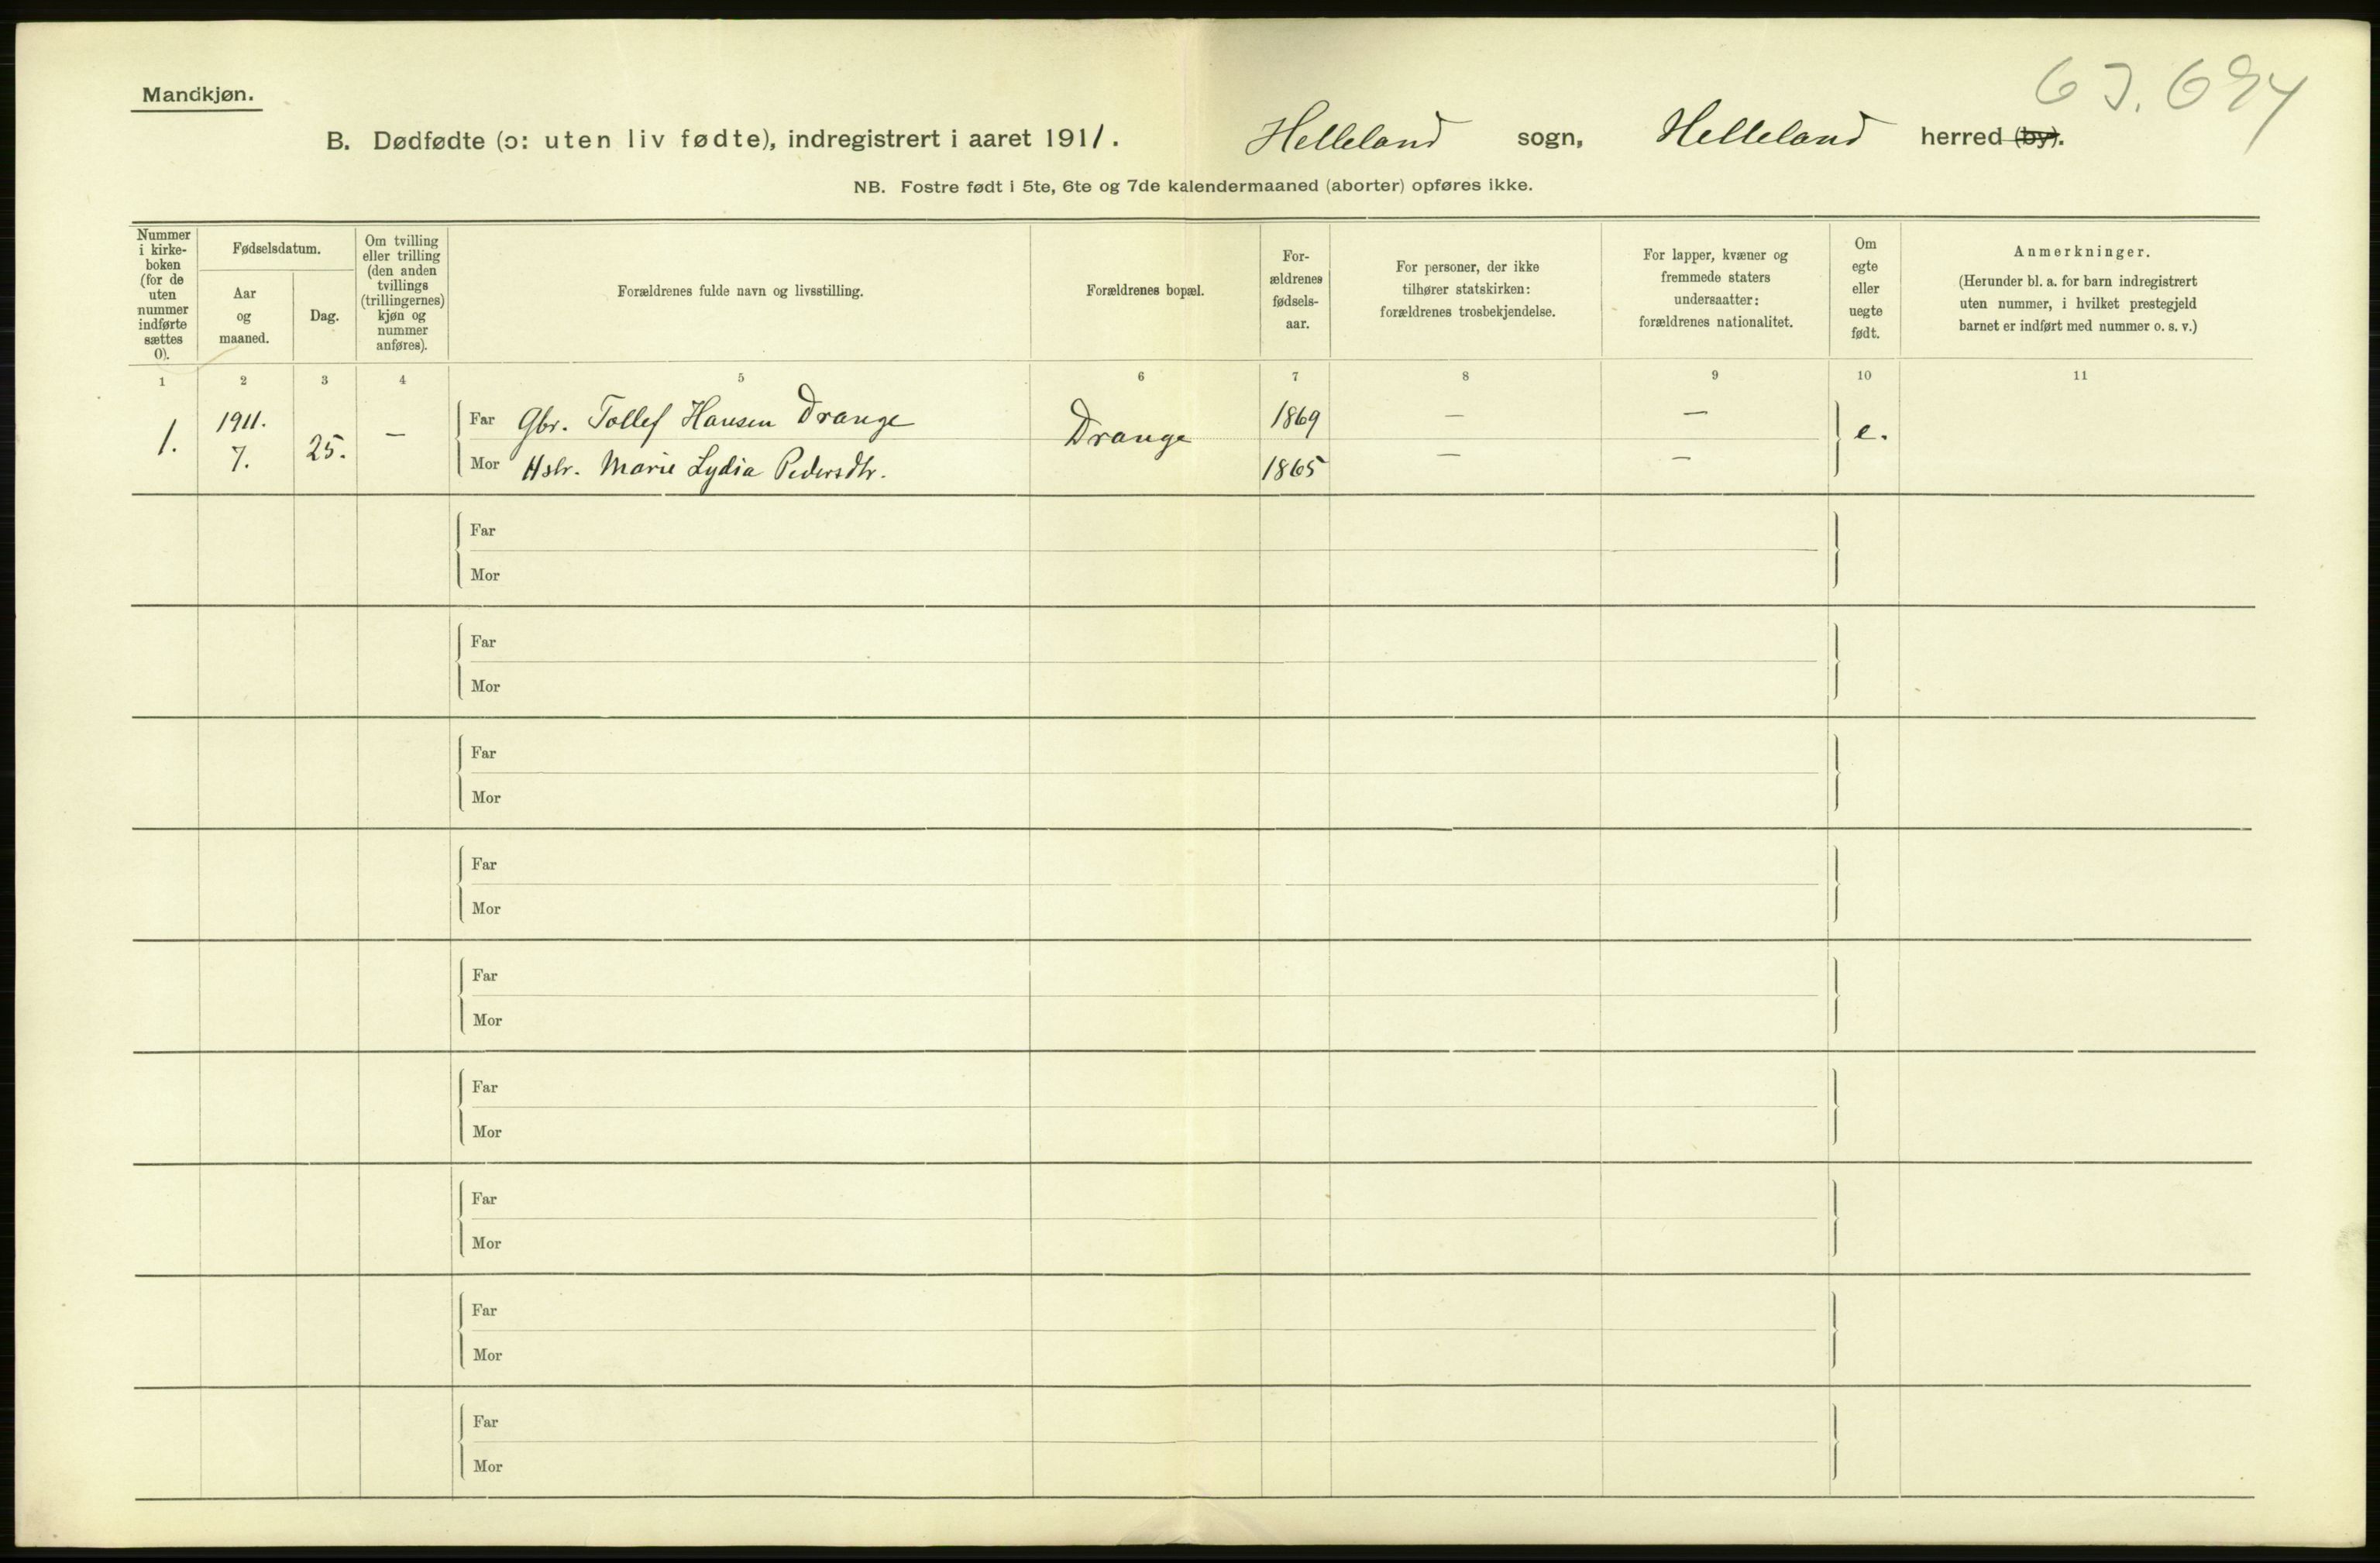 Mandkjøn.
B. Dødfødte (ɔ: uten liv fødte), indregistrert i aaret 1911. Helleland sogn, Helleland herred (by).
NB. Fostre født i 5te, 6te og 7de kalendermaaned (aborter) opføres ikke.
Nummer
i kirke-
boken
(for de
uten
nummer
indførte
sættes
0).
Fødselsdatum.
Aar
og
maaned.
Dag.
Om tvilling
eller trilling
(den anden
tvillings
(trillingernes)
kjøn og
nummer
anføres).
Forældrenes fulde navn og livsstilling.
Forældrenes bopæl.
For-
ældrenes
fødsels-
aar.
For personer, der ikke
tilhører statskirken:
forældrenes trosbekjendelse.
For lapper, kvæner og
fremmede staters
undersaatter:
forældrenes nationalitet.
Om
egte
eller
uegte
født.
Anmerkninger.
(Herunder bl. a. for barn indregistrert
uten nummer, i hvilket prestegjeld
barnet er indført med nummer o. s. v.)
1 2 3 4 5 6 7 8 9 10 11
1. 1911. 7. 25. —
Far Gbr. Tollef Hansen Drange Drange 1869 — — e.
Mor Hstr. Marie Lydia Pedersdtr. 1865 — —
Far
Mor
Far
Mor
Far
Mor
Far
Mor
Far
Mor
Far
Mor
Far
Mor
Far
Mor
Far
Mor